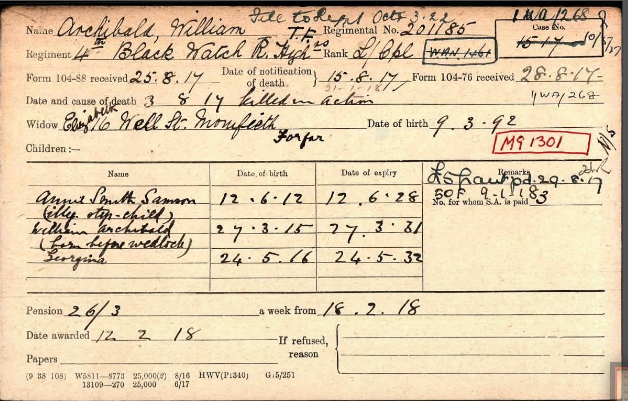 File to Regt Octr 3.22
1 MA/268
Name Archibald, William T.F. Regimental No. 201185
Case No.
1517 10/5/27
Regiment 4th Black Watch R. Highrs Rank L/Cpl
Form 104-88 received 25.8.17 Date of notification of death 15.8.17 Form 104-76 received 28.8.17
21.1.18
1WA/268
Date and cause of death 3 8 17 Killed in action
Widow Elizabeth 16 Well St. Monifieth Forfar Date of birth 9.3.92
Children:—
M91301
Name Date of birth Date of expiry Remarks
pd. 29.8.17
No. for whom S.A. is paid 3
Annie Smith Samson 12.6.12 12.6.28
(illeg. step-child)
William Archibald 27.3.15 27.3.31
(born before wedlock)
Georgina 24.5.16 24.5.32
Pension 26/3 a week from 18.2.18
Date awarded 12 2 18 If refused, reason
Papers
(9 38 108) W5811—8773 25,000(2) 8/16 HWV(P1340) G15/251
13109—270 25,000 6/17